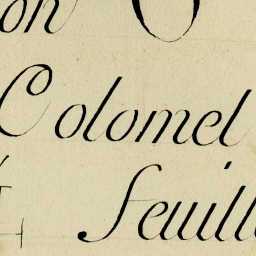 on
Colomel
4 feuill